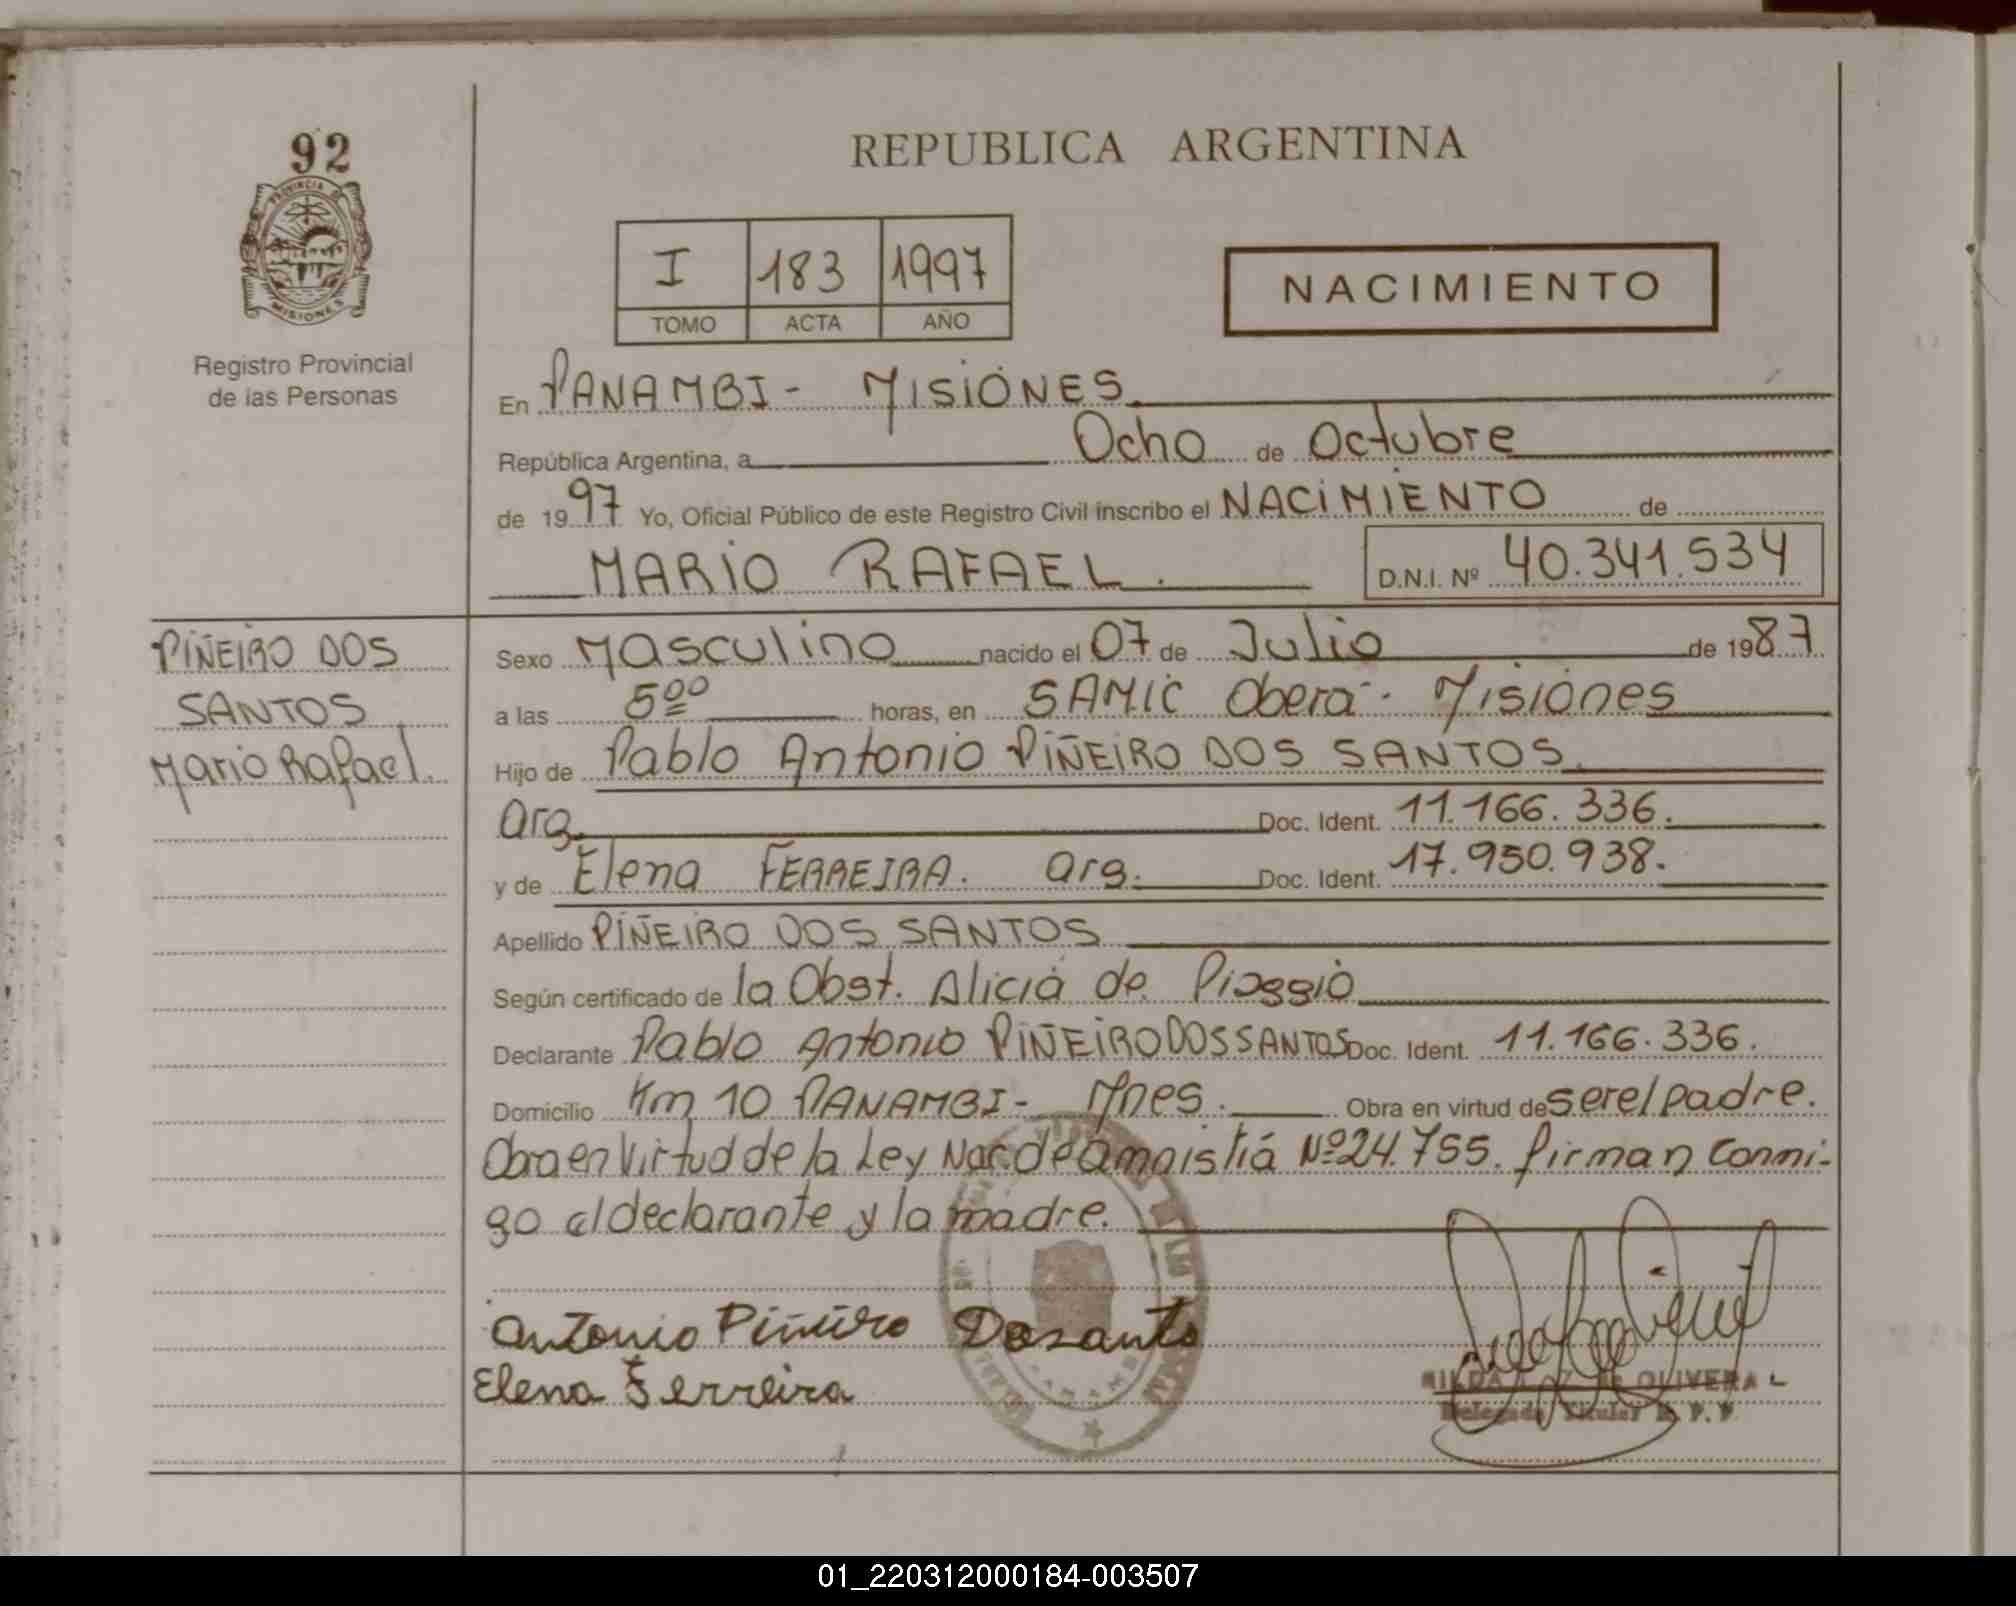 92
PROVINCIA DE
MISIONES
Registro Provincial
de las Personas
REPUBLICA ARGENTINA
I 183 1997
TOMO ACTA AÑO
NACIMIENTO
En PANAMBI - MISIONES
República Argentina, a Ocho de Octubre
de 1997 Yo, Oficial Público de este Registro Civil inscribo el NACIMIENTO de
MARIO RAFAEL. D.N.I. Nº 40.341.534
PIÑEIRO DOS
SANTOS
Mario Rafael.
Sexo Masculino nacido el 07 de Julio de 1987
a las 5⁰⁰ horas, en SAMIC Oberá - Misiones
Hijo de Pablo Antonio PIÑEIRO DOS SANTOS.
Arg. Doc. Ident. 11.166.336.
y de Elena FERREIRA. Arg. Doc. Ident. 17.950.938.
Apellido PIÑEIRO DOS SANTOS
Según certificado de la Obst. Alicia de Pioggio
Declarante Pablo Antonio PIÑEIRO DOS SANTOS Doc. Ident. 11.166.336.
Domicilio Km 10 PANAMBI - Mnes. Obra en virtud de ser el padre.
Obra en Virtud de la Ley Nac. de Amnistiá Nº 24.755. firman conmi-
go el declarante y la madre.
Antonio Piñeiro Dosanto
Elena Ferreira
OLIVERA
Delegada Titular R.P.P
01_220312000184-003507